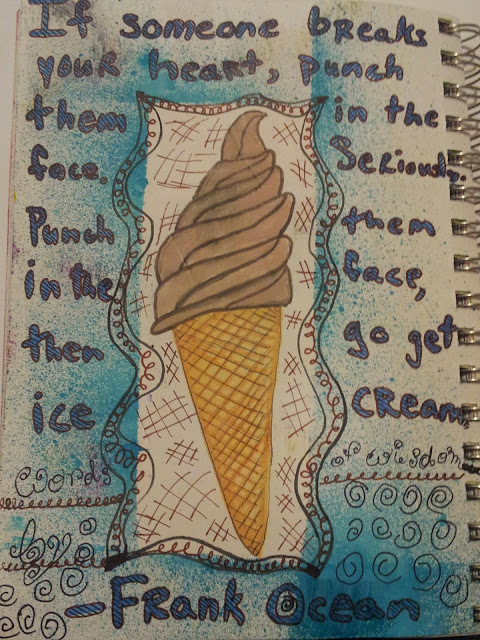 If someone breaks
your heart, punch
them in the
face. Seriously.
Punch them
in the face,
then go get
ice cream.
words of wisdom
by
-Frank Ocean